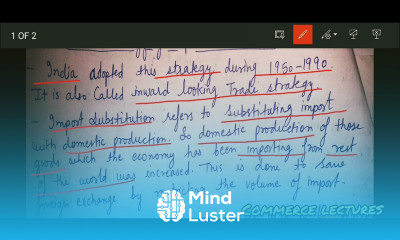 1 OF 2
- India adopted this strategy during 1950-1990.
It is also called inward looking Trade strategy.
- Import substitution refers to substituting import
with domestic production. & domestic production of those
goods which the economy has been importing from rest
of the world was increased. This is done to save
foreign exchange by the volume of import.
Mind
Luster
COMMERCE LECTURES